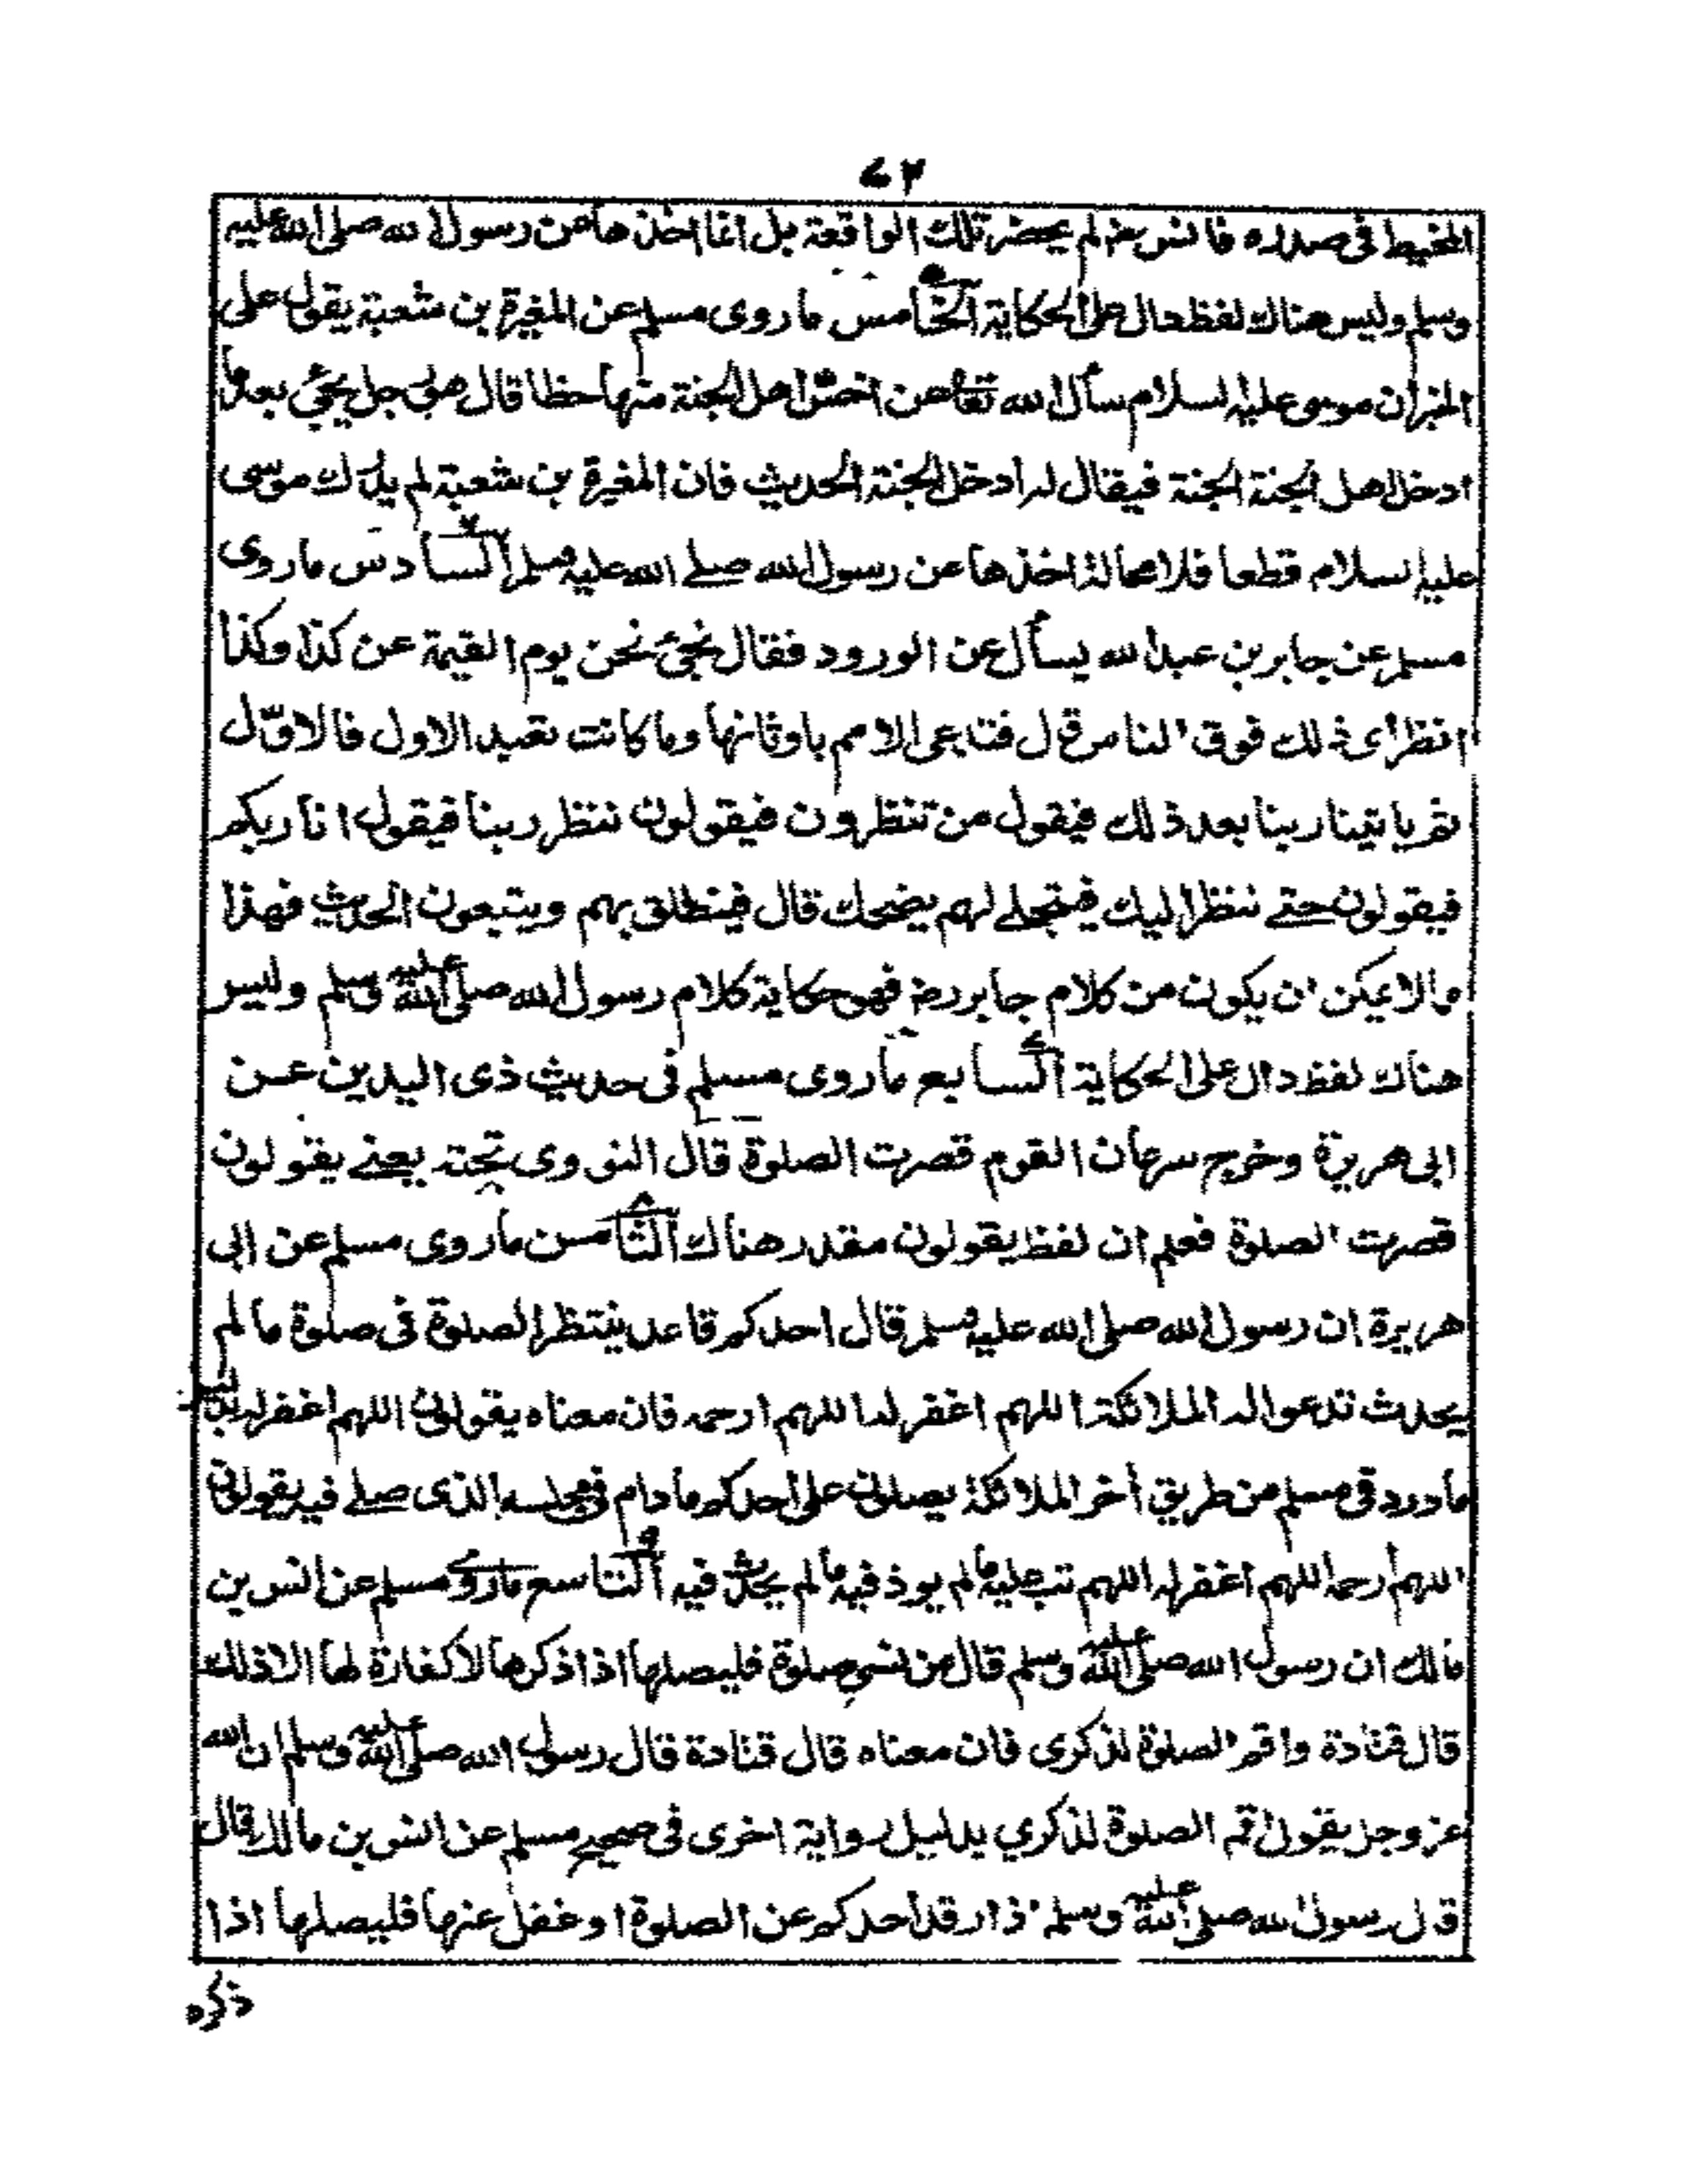 ٧٢
المخيط فى صدره فانس رضـ لم يحضر تلك الواقعة بل انما اخذها عن رسول الله صلى الله عليه
وسلم وليس هناك لفظ دال على الحكاية الخامس ما روى مسلم عن المغيرة بن شعبة يقول على
المنبر ان موسى عليه السلام سأل الله تعا عن اخس اهل الجنة منها حظا قال هو رجل يجئ بعد ما
ادخل اهل الجنة الجنة فيقال له ادخل الجنة الحديث فان المغيرة بن شعبة لم يدرك موسى
عليه السلام قطعا فلا محالة اخذها عن رسول الله صلے الله عليه وسلم السادس ما روى
مسلم عن جابر بن عبد الله يسأل عن الورود فقال نجئ نحن يوم القيمة عن كذا وكذا
انظر اى ذلك فوق الناس قال فتدعى الامم باوثانها وما كانت تعبد الاول فالاوّل
ثم ياتينا ربنا بعد ذلك فيقول من تنظرون فيقولون ننتظر ربنا فيقول انا ربكم
فيقولون حتے ننظر اليك فيتجلے لهم يضحك قال فينطلق بهم ويتبعون الحديث فهذا
مالا يمكن ان يكون من كلام جابر رضـ فهو حكاية كلام رسول الله صلى الله عليه وسلم وليس
هناك لفظ دال على الحكاية السابع ما روى مسلم فى حديث ذى اليدين عن
ابى هريرة وخرج سرعان القوم قصرت الصلوة قال النووى تحته يعنے يقولون
قصرت الصلوة فعلم ان لفظ يقولون مقدر هناك الثامن ما روى مسلم عن ابى
هريرة ان رسول الله صلى الله عليه وسلم قال احدكم قاعد ينتظر الصلوة فى صلوة ما لم
يحدث تدعو له الملائكة اللهم اغفر له اللهم ارحمه فان معناه يقولون اللهم اغفر له بدليل
ما ورد فى مسلم من طريق أخر الملائكة يصلون على احدكم ما دام فى مجلسه الذى صلے فيه يقولون
اللهم ارحمه اللهم اغفر له اللهم تب عليه ما لم يوذ فيه ما لم يحدث فيه التاسع ما روے مسلم عن انس بن
مالك ان رسول الله صلى الله عليه وسلم قال من نسى صلوة فليصلها اذا ذكرها لا كفارة لها الا ذلك
قال قتادة واقم الصلوة لذكرى فان معناه قال قتادة قال رسول الله صلى الله عليه وسلم ان الله
عز وجل يقول اقم الصلوة لذكري بدليل رواية اخرى فى صحيح مسلم عن انس بن مالك قال
قال رسول الله صلى الله عليه وسلم اذا رقد احدكم عن الصلوة او غفل عنها فليصلها اذا
ذكره